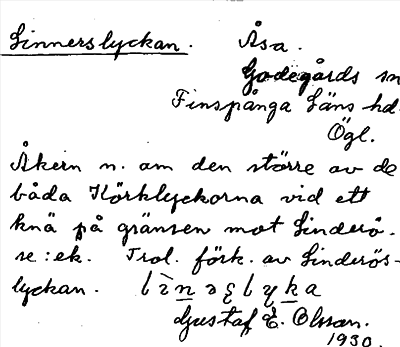 Linnerslyckan. Åsa.
Godegårds sn
Finspånga Läns hd.
Ögl.
Åkern n. om den större av de
båda Körklyckorna vid ett
knä på gränsen mot Linderö.
se: ek. Trol. förk. av Linderös-
lyckan.
Gustaf E. Olsson.
1930.